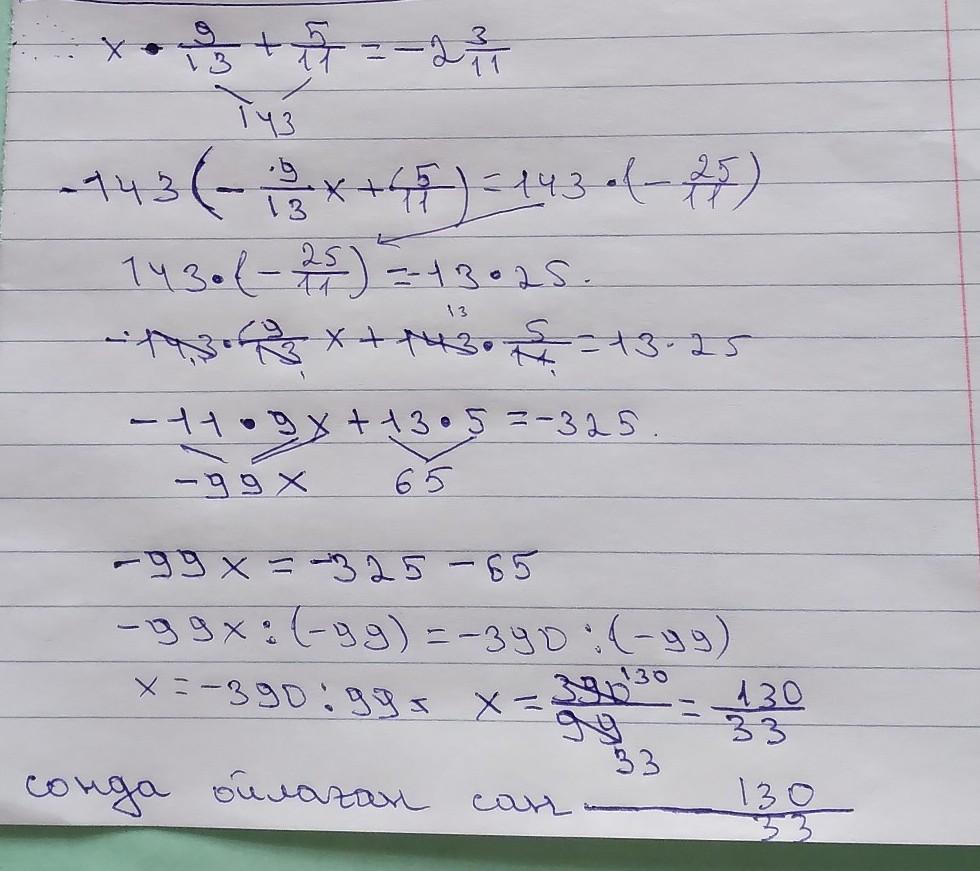 x • 9/13 + 5/11 = -2 3/11
143
-143(-9/13 x + (5/11) = 143 • (-25/11)
143 • (-25/11) = -13 • 25.
13
-143 • (9/13 x + 143 • 5/11 = 13 • 25
-11 • 9x + 13 • 5 = -325.
-99x 65
-99x = -325 - 65
-99x : (-99) = -390 : (-99)
x = -390 : 99 x = 390 130/99 33 = 130/33
сонда ойлаған сан — 130/33